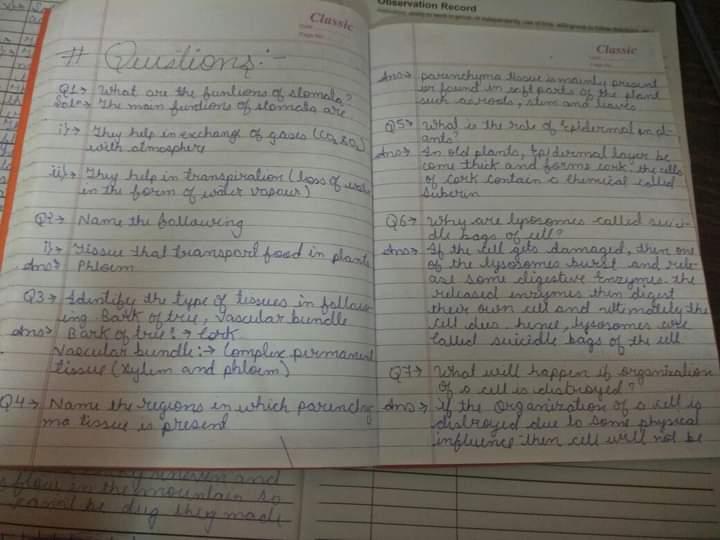 Classic
# Questions :-
Q1 → What are the funtions of stomata?
Solⁿ → The main funtions of stomata are
i) → They help in exchange of gases (CO2 & O2)
with atmosphere
ii) → They help in transpiration (loss of water
in the form of water vapour)
Q2 → Name the following
i) → Tissue that transport food in plants
Ans → Phloem
Q3 → Identify the type of tissues in follow
ing Bark of tree, Vascular bundle
Ans → Bark of tree :→ Cork
Vascular bundle :→ Complex permanent
tissue (xylem and phloem)
Q4 → Name the regions in which parenchy
ma tissue is present
Observation Record
Classic
Ans → parenchyma tissue is mainly present
or found in soft parts of the plant
such as roots, stem and leaves
Q5 → What is the role of Epidermal in pl-
ants?
Ans → In old plants, Epidermal layer be
come thick and forms cork, the cells
of cork contain a chemical called
Suberin
Q6 → Why are lysosomes called suici-
dle bags of cell?
Ans → If the cell gets damaged, then one
of the lysosomes burst and rele-
ase some digestive Enzymes. the
released enzymes then digest
their own cell and ultimately the
cell dies. hence, lysosomes are
called suicidle bags of the cell
Q7 → What will happen if organization
of a cell is distroyed?
Ans → If the Organization of a cell is
distroyed due to some physical
influence then cell will not be
uneven and
flow in the mountain so
cannot be dug they made